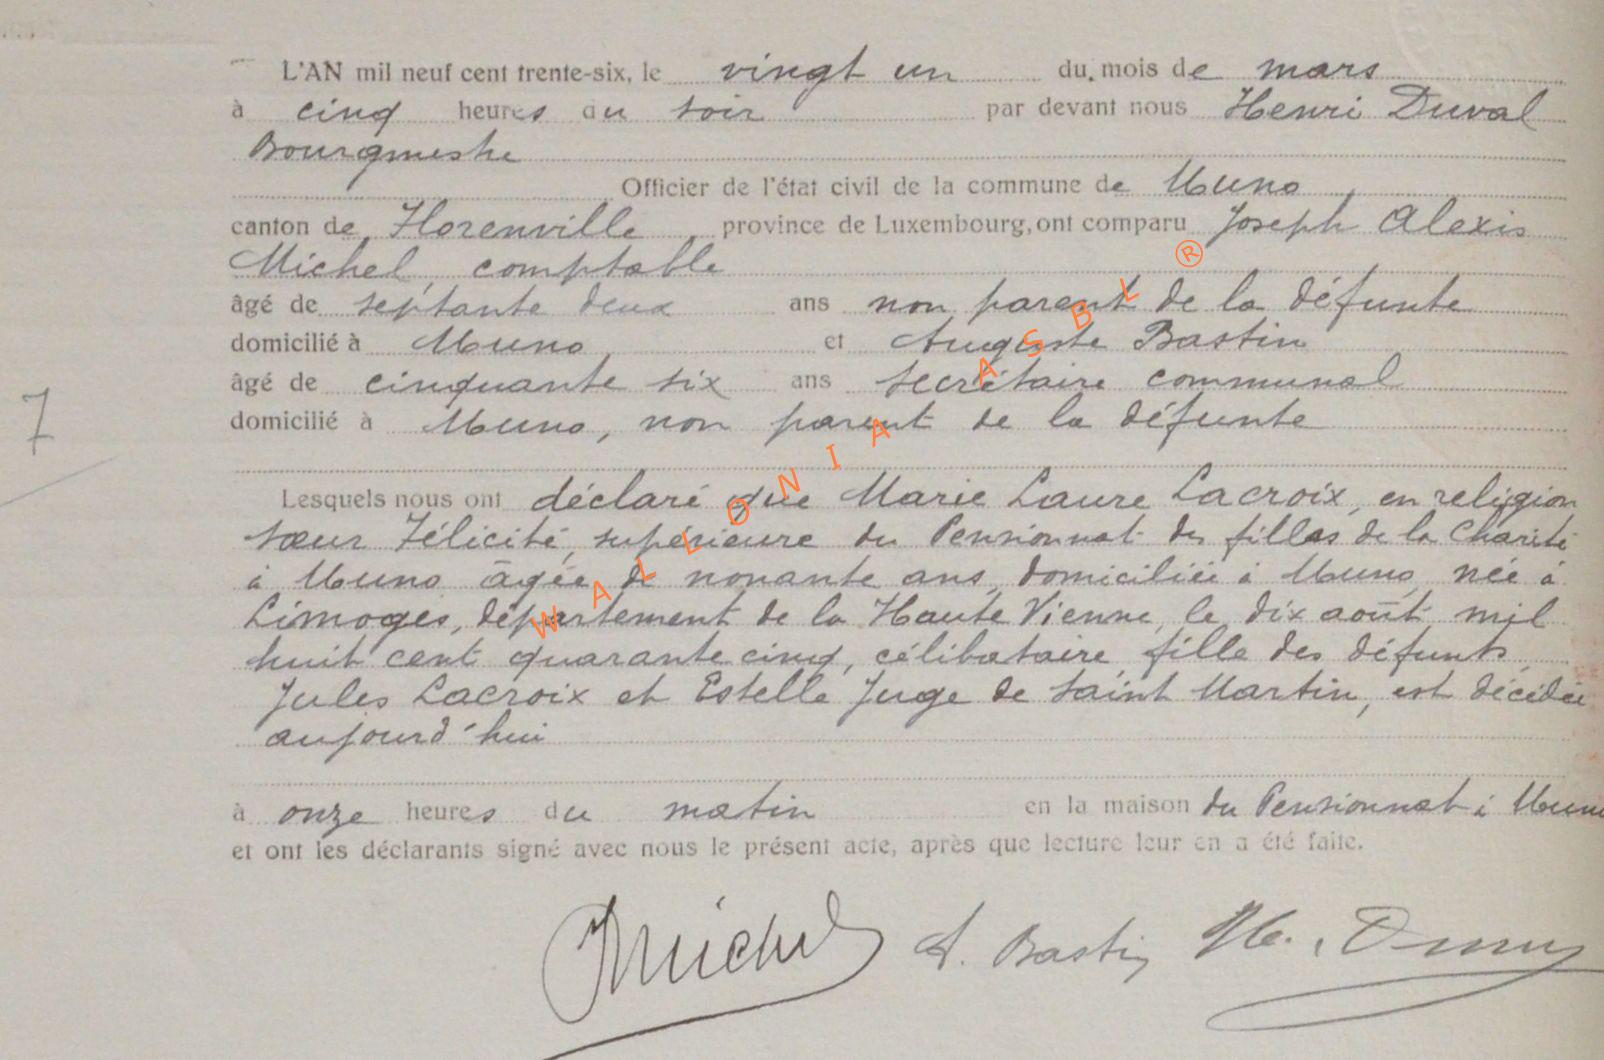 L'AN mil neuf cent trente-six, le vingt un du mois de mars
à cinq heures du soir par devant nous Henri Duval
Bourgmestre
Officier de l'état civil de la commune de Muno
canton de Florenville province de Luxembourg, ont comparu Joseph Alexis
Michel, comptable
âgé de septante deux ans non parent de la défunte
domicilié à Muno et Auguste Bastin
âgé de cinquante six ans secrétaire communal
domicilié à Muno, non parent de la défunte
7
Lesquels nous ont déclaré que Marie Laure Lacroix, en religion
sœur Félicité, supérieure du Pensionnat des filles de la Charité
à Muno âgée de nonante ans, domiciliée à Muno, née à
Limoges, département de la Haute Vienne, le dix août mil
huit cent quarante cinq, célibataire, fille des défunts
Jules Lacroix et Estelle Juge de Saint Martin, est décédée
aujourd'hui
à onze heures du matin en la maison du Pensionnat à Muno
et ont les déclarants signé avec nous le présent acte, après que lecture leur en a été faite.
JMichel A. Bastin H. Duval
WALLONIA ASBL ®